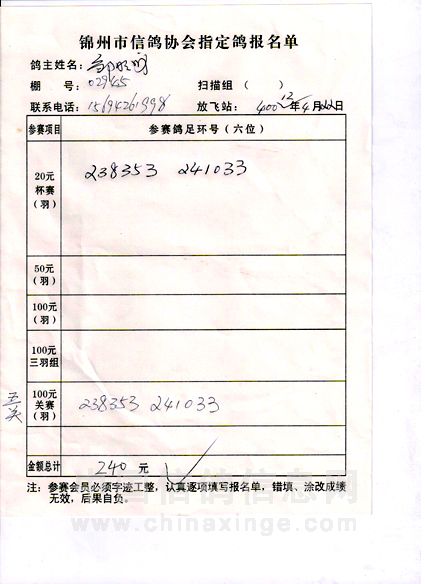 锦州市信鸽协会指定鸽报名单
鸽主姓名：
棚 号：029465 扫描组（ ）
联系电话： 放飞站：400 12年4月22日
参赛项目 参赛鸽足环号（六位）
20元
杯赛
（羽）
238353 241033
50元
（羽）
100元
（羽）
100元
三羽组
五关
100元
关赛
（羽）
238353 241033
金额总计 240 元
注：参赛会员必须字迹工整，认真逐项填写报名单，错填、涂改成绩
无效，后果自负。
中国信鸽信息网
www.chinaxinge.com